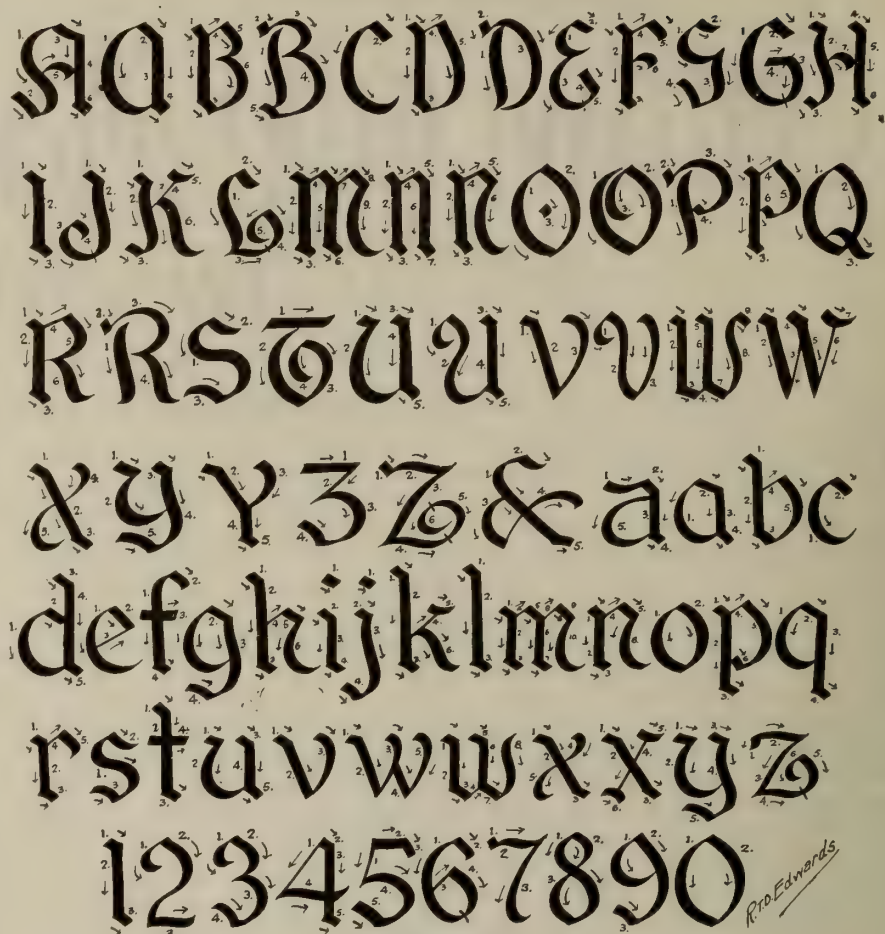 A A B B C D D E F G G H
I J K L M N N O O P P Q
R R S T U U V V W W
X Y Y Z Z & a a b c
d e f g h i j k l m n o p q
r s t u v w w x x y z
1 2 3 4 5 6 7 8 9 0 R.T.D. Edwards